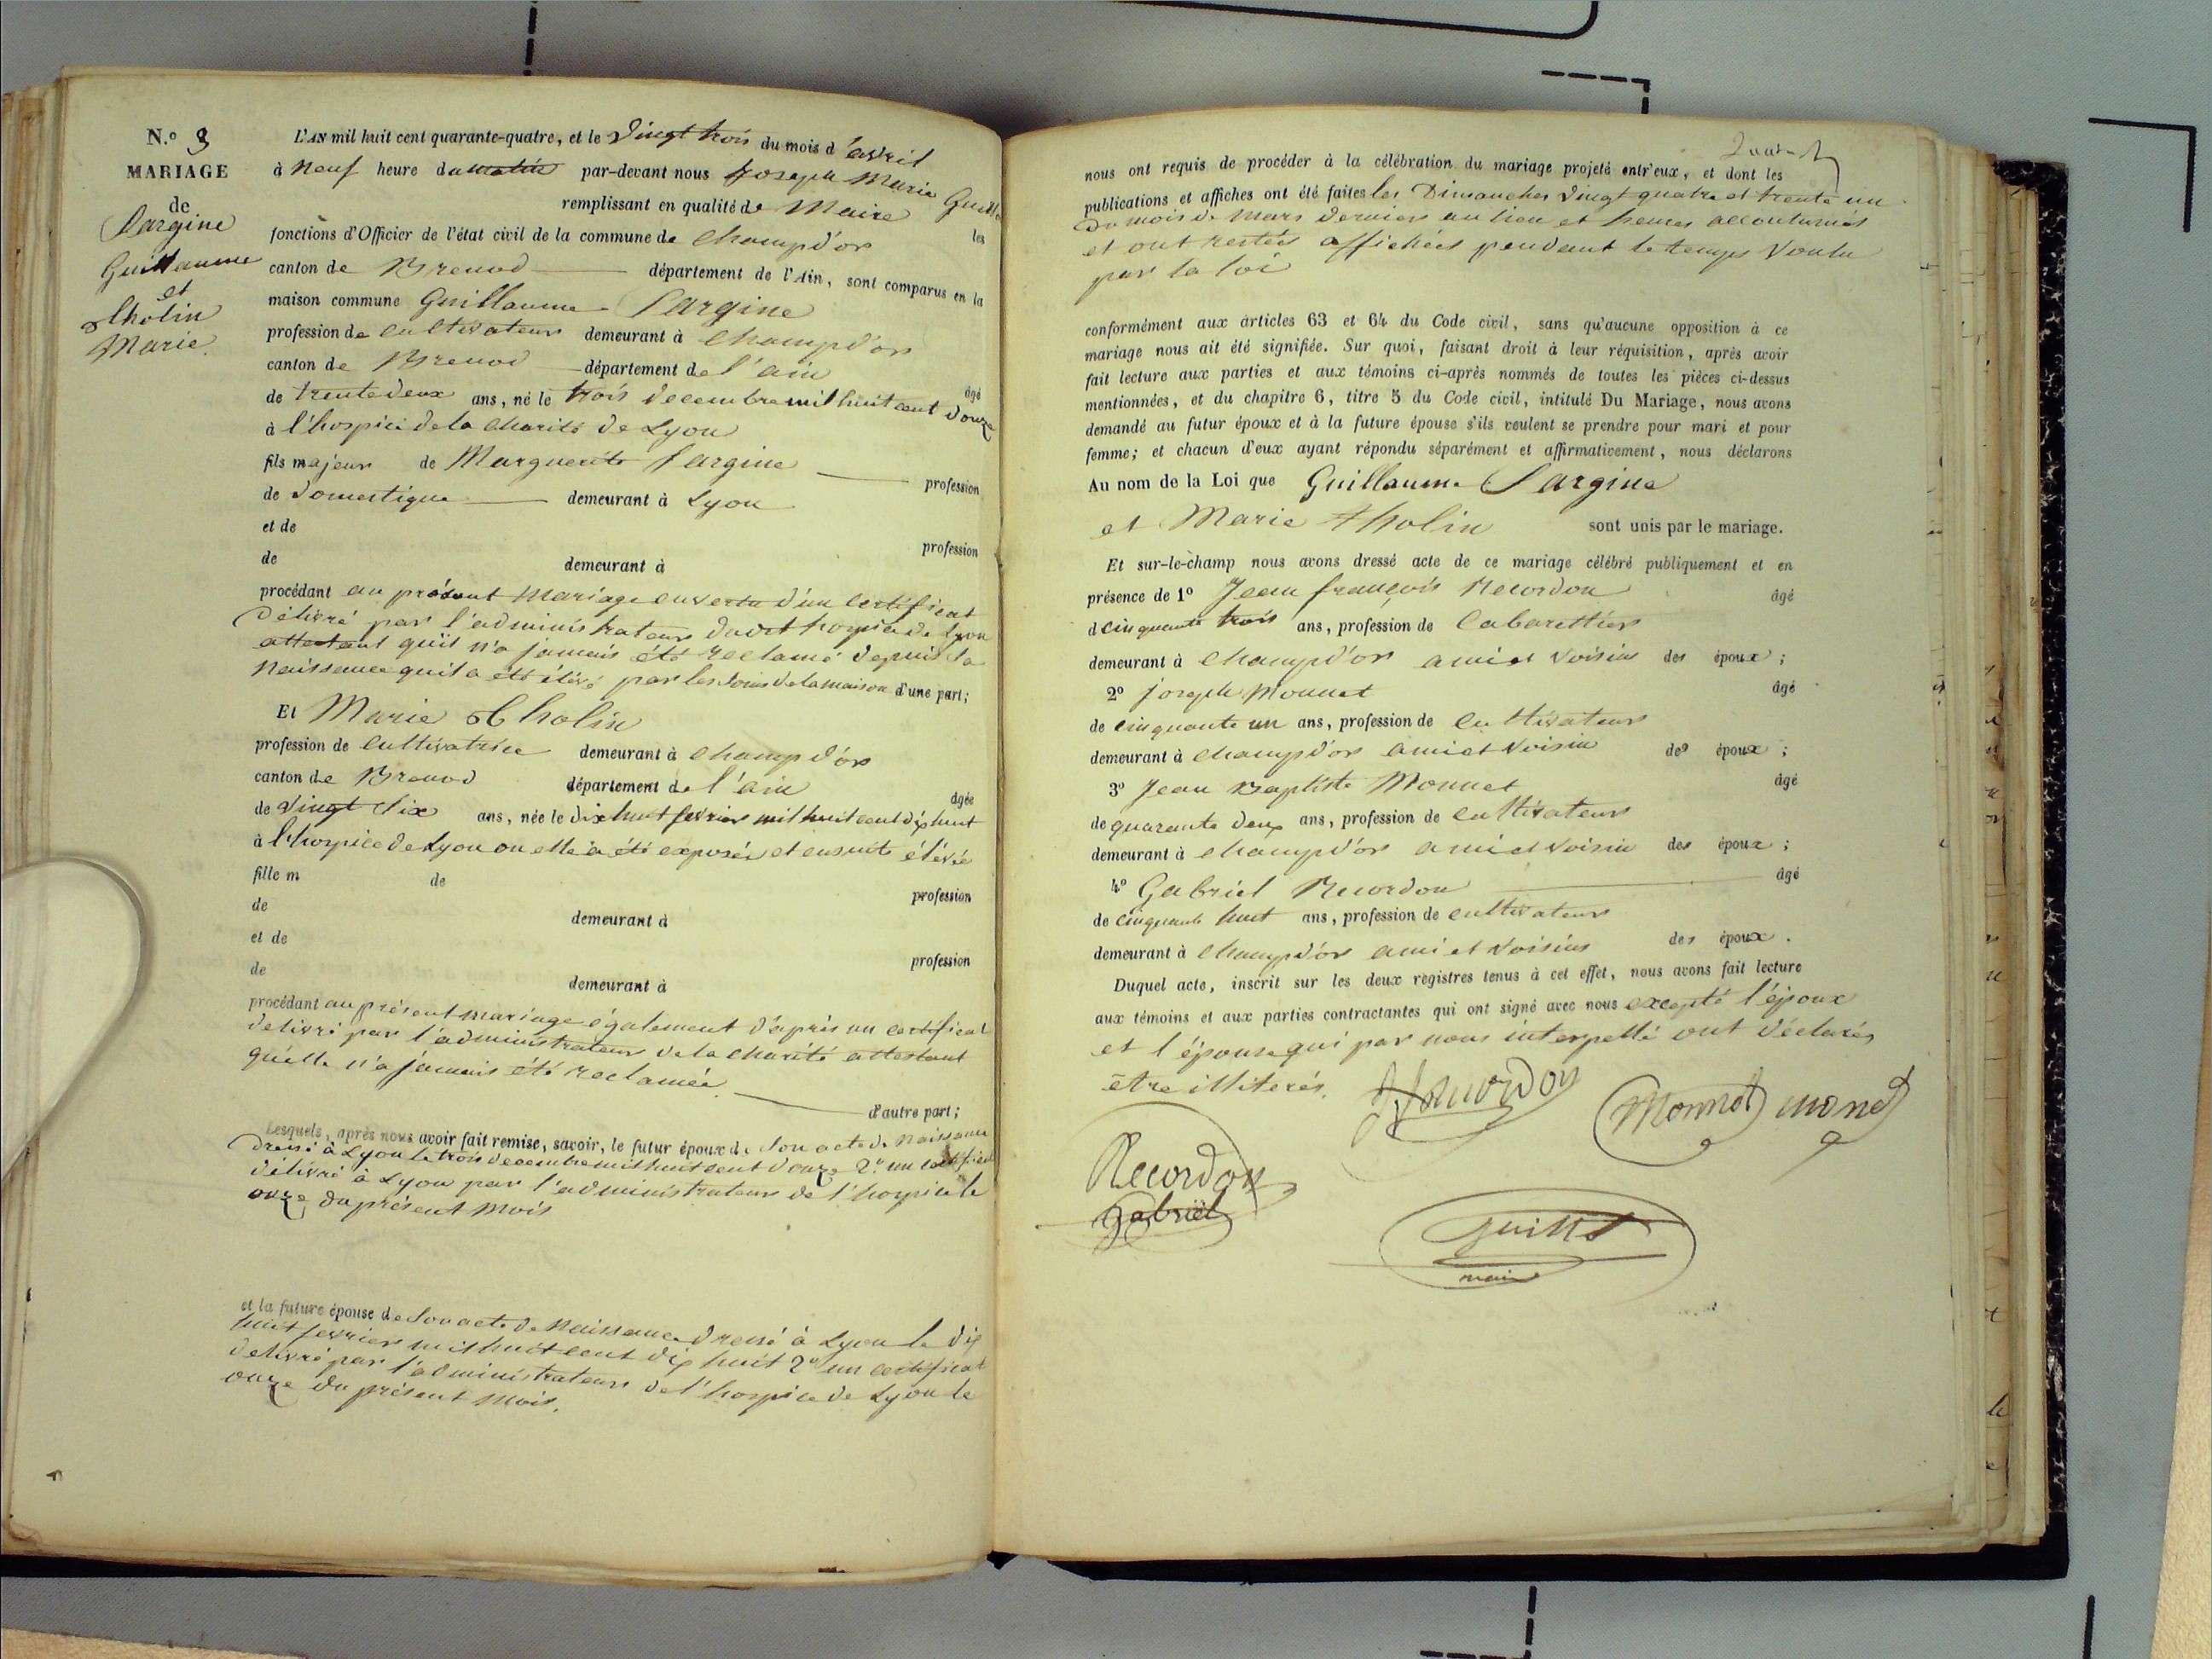 N.o 3
MARIAGE
de
Sargine
Guillaume
et
tholin
Marie.
L'AN mil huit cent quarante-quatre, et le vingt trois du mois d'avril
à neuf heure du matin par-devant nous Joseph Marie
remplissant en qualité de Maire les
fonctions d'Officier de l'état civil de la commune de Champd'or
canton de Brenod département de l'Ain, sont comparus en la
maison commune Guillaume Sargine
profession de cultivateur demeurant à Champd'or
canton de Brenod département de l'ain
âgé
de trente deux ans, né le trois decembre mil huit cent douze
à l'hospice de la charité de Lyon
fils majeur de Marguerite Sargine profession
de domestique demeurant à Lyon
et de profession
de demeurant à
procédant au présent mariage en vertu d'un certificat
délivré par l'administrateur dudit hospice de Lyon
attestant qu'il n'a jamais été reclamé depuis sa
naissance qu'il a été élevé par les soins de la maison d'une part;
Et Marie tholin
profession de cultivatrice demeurant à champd'or
canton de Brenod département de l'ain
âgée
de vingt six ans, née le dix huit fevrier mil huit cent dix huit
à l'hospice de Lyon ou elle a été exposée et ensuite élévée
fille m de profession
de demeurant à
et de profession
de demeurant à
procédant au présent mariage également d'après un certificat
delivré par l'administrateur de la charité attestant
qu'elle n'a jamais été reclamée.
d'autre part;
Lesquels, après nous avoir fait remise, savoir, le futur époux de son acte de naissance
dressé à Lyon le trois decembre mil huit cent douze 2o un certificat
délivré à Lyon par l'administrateur de l'hospice le
onze du présent mois
et la future épouse de son acte de naissance dressé à Lyon le dix
huit fevrier mil huit cent dix huit 2o un certificat
delivré par l'administrateur de l'hospice de Lyon le
onze du présent mois.
nous ont requis de procéder à la célébration du mariage projeté entr'eux, et dont les
publications et affiches ont été faites les Dimanches vingt quatre et trente un
du mois de mars dernier au lieu et heures accoutumés
et ont restées affichées pendant le temps voulu
par la loi
conformément aux articles 63 et 64 du Code civil, sans qu'aucune opposition à ce
mariage nous ait été signifiée. Sur quoi, faisant droit à leur réquisition, après avoir
fait lecture aux parties et aux témoins ci-après nommés de toutes les pièces ci-dessus
mentionnées, et du chapitre 6, titre 5 du Code civil, intitulé Du Mariage, nous avons
demandé au futur époux et à la future épouse s'ils veulent se prendre pour mari et pour
femme; et chacun d'eux ayant répondu séparément et affirmativement, nous déclarons
Au nom de la Loi que Guillaume Sargine
et Marie tholin sont unis par le mariage.
Et sur-le-champ nous avons dressé acte de ce mariage célébré publiquement et en
présence de 1o Jean françois Recordon âgé
d cinquante trois ans, profession de Cabarettier
demeurant à Champd'or ami et voisin des époux;
2o joseph Monnet âgé
de cinquante un ans, profession de cultivateur
demeurant à champd'or ami et voisin des époux;
3o Jean Baptiste Monnet âgé
de quarante deux ans, profession de cultivateur
demeurant à champd'or ami et voisin des époux;
4o Gabriel Recordon âgé
de cinquante huit ans, profession de cultivateur
demeurant à champd'or ami et voisin des époux.
Duquel acte, inscrit sur les deux registres tenus à cet effet, nous avons fait lecture
aux témoins et aux parties contractantes qui ont signé avec nous excepté l'époux
et l'épouse qui par nous interpellé ont déclarés
être illiterés.
Recordon
Monnet
monet
Recordon
gabriel
Guillot
maire